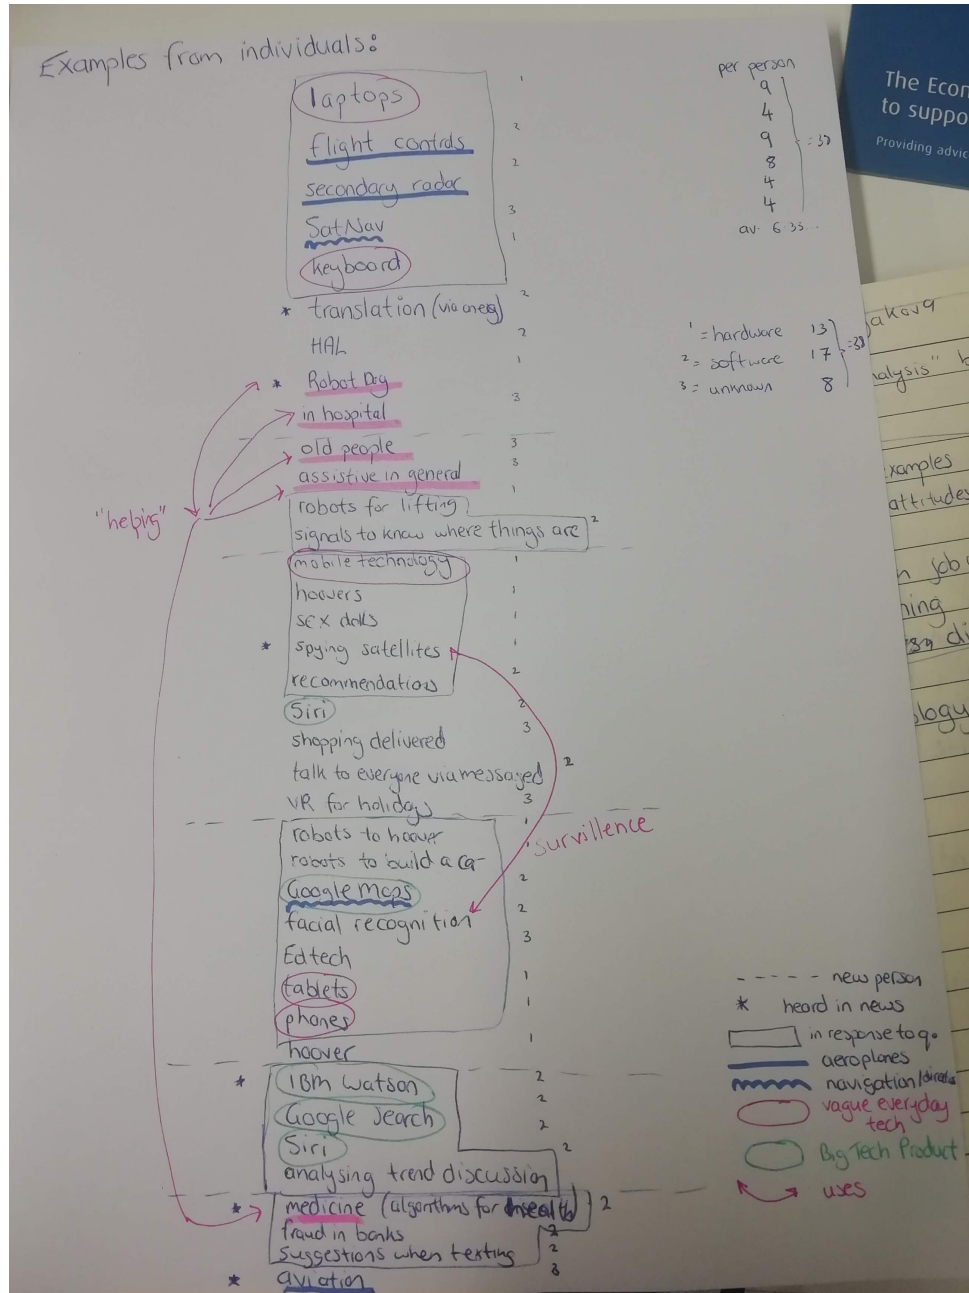 Examples from individuals:
laptops 1
flight controls 2
secondary radar 2
SatNav 3
keyboard 1
* translation (via 2
HAL 2
* Robot Dog 1
in hospital 3
old people 3
assistive in general 3
robots for lifting 1
signals to know where things are 2
"helping"
mobile technology 1
hoovers 1
sex dolls 1
* spying satellites 1
recommendations 2
Siri 2
shopping delivered 3
talk to everyone via messaged 2
VR for holidays 3
robots to hoover 1
robots to build a ca 1
survillence
Google Maps 2
facial recognition 2
Edtech 3
tablets 1
phones 1
hoover 1
* IBM Watson 2
Google Search 2
Siri 2
analysing trend discussion 2
* medicine (algorithms for health) 2
fraud in banks 2
suggestions when texting 2
* aviation 3
per person
9
4
9
8
4
4
= 38
av. 6.33...
1 = hardware 13
2 = software 17
3 = unknown 8
= 38
----- new person
* heard in news
in response to q.
aeroplanes
navigation/
vague everyday
tech
Big Tech Product
uses
The Econ
to suppo
Providing advic
akova
nalysis" b
xamples
attitudes
n job
ning
di
ology